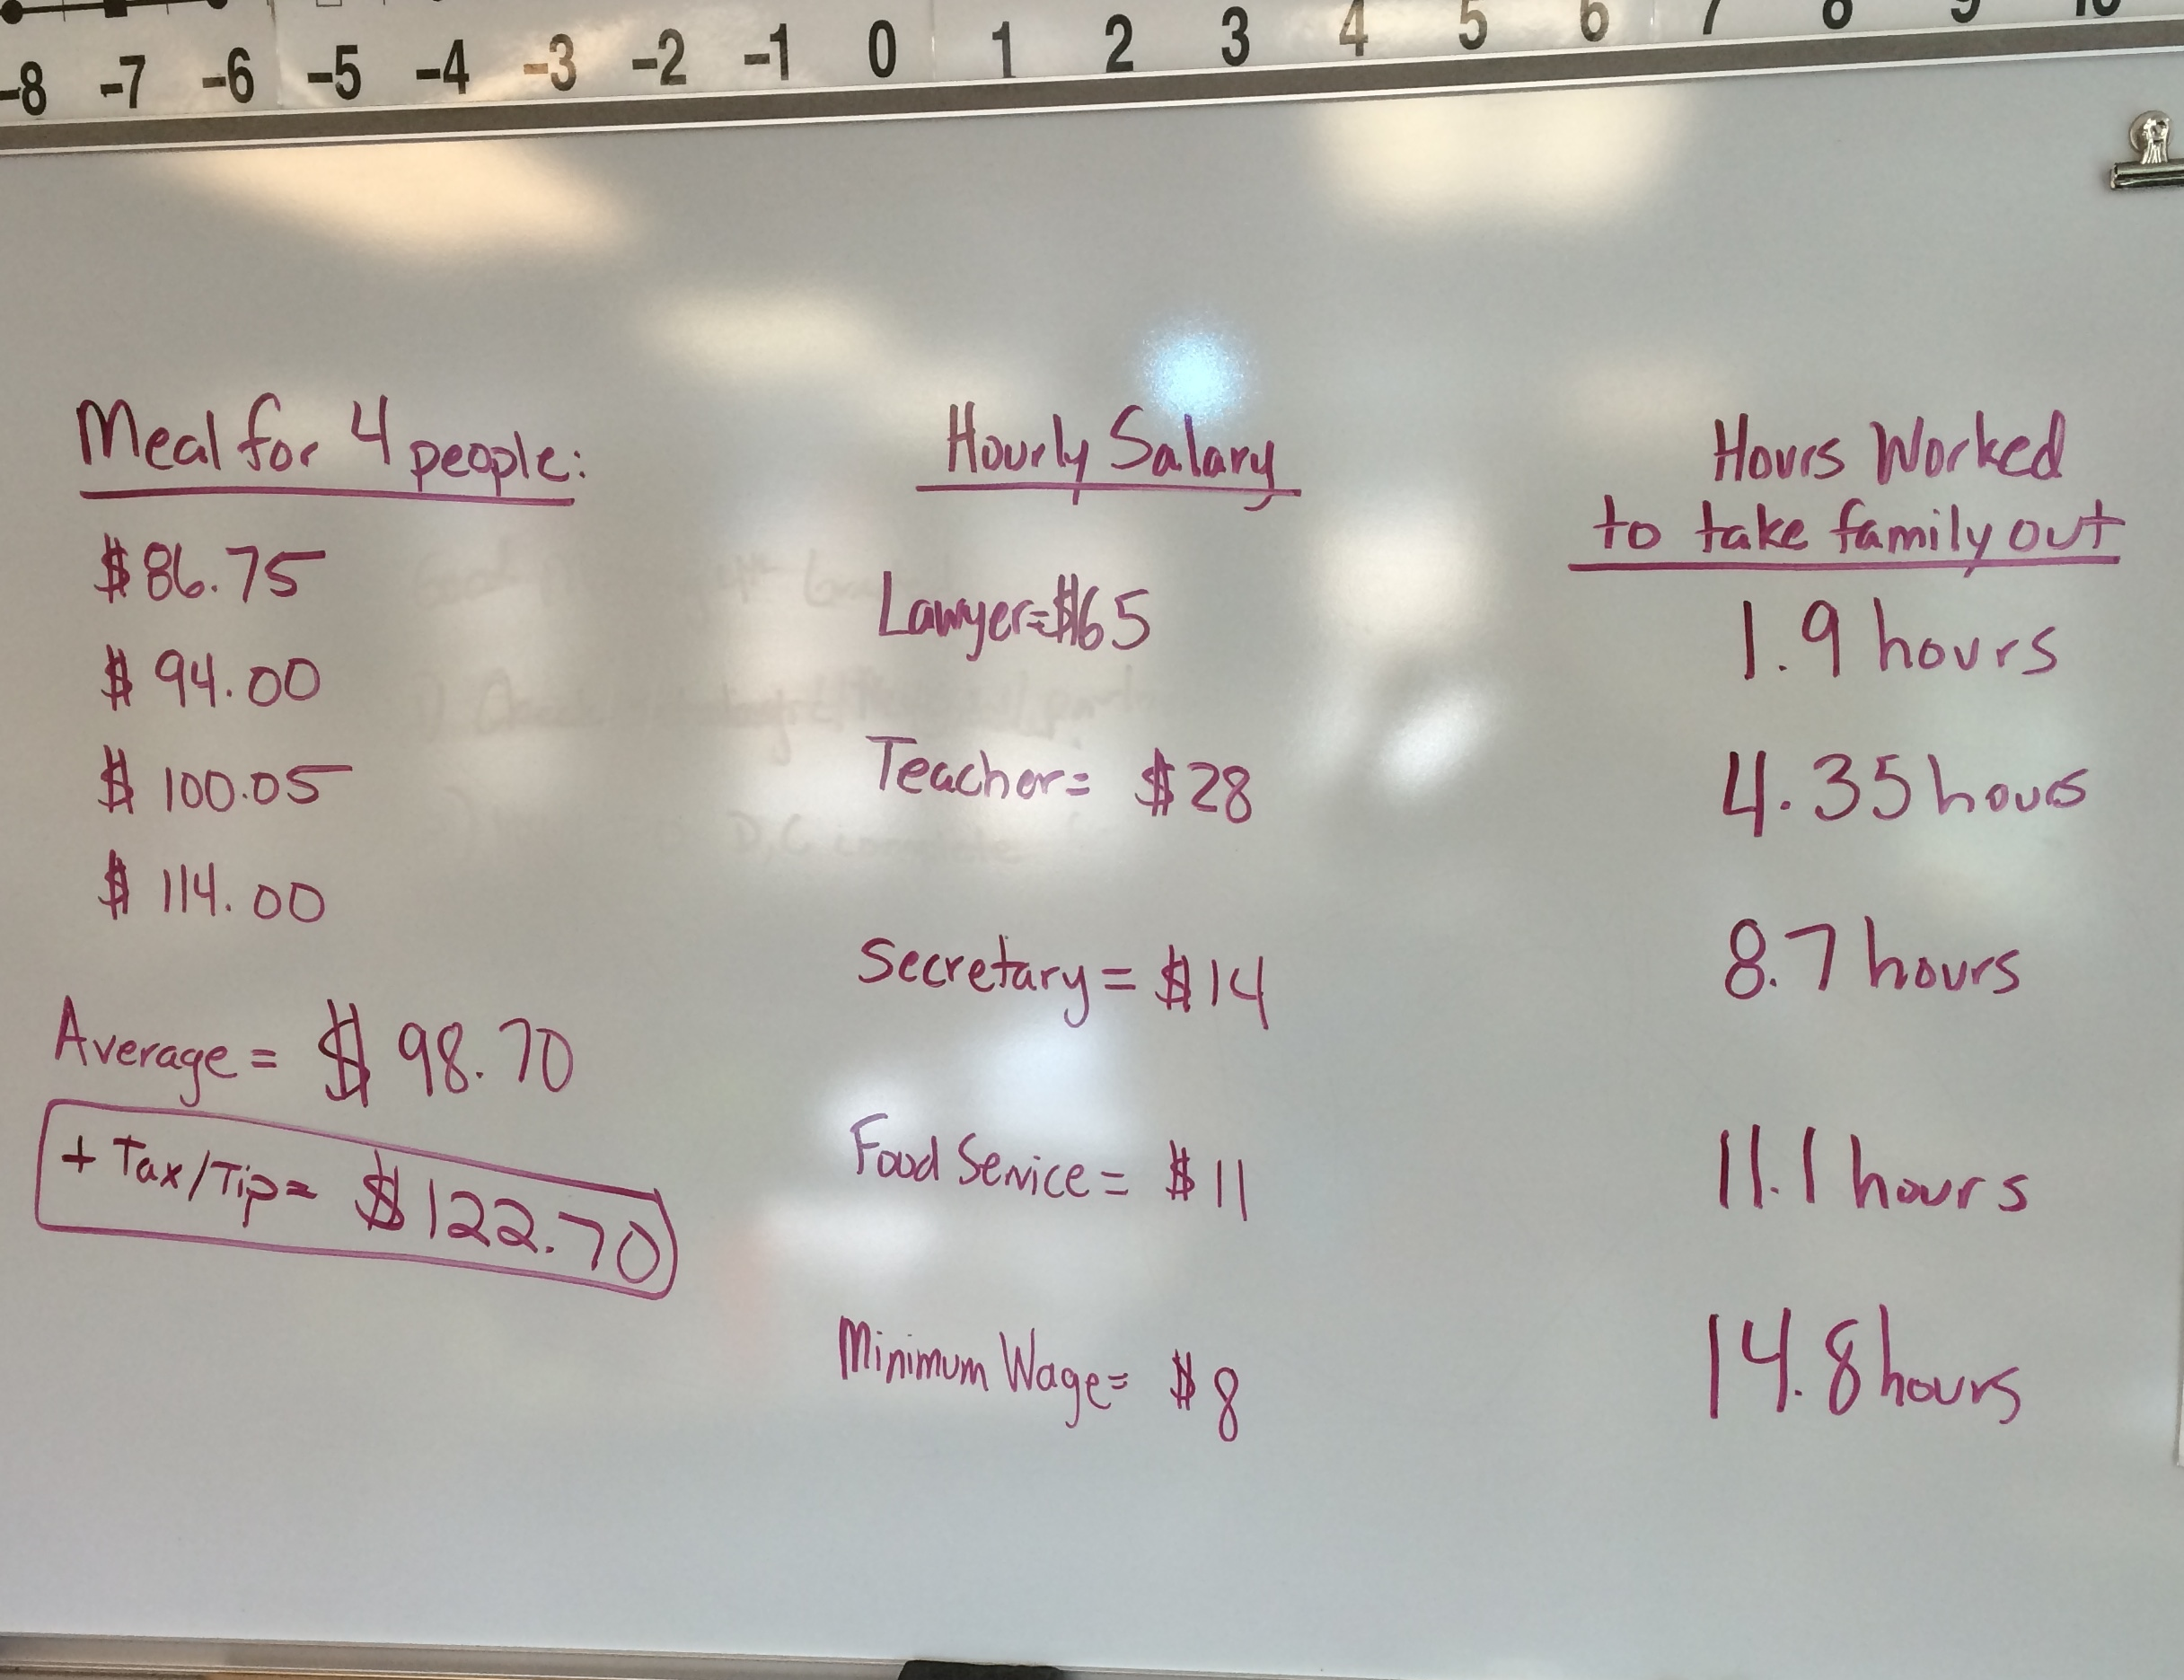 -8 -7 -6 -5 -4 -3 -2 -1 0 1 2 3 4 5 6 7 8 9 10
Meal for 4 people:
$86.75
$ 94.00
$ 100.05
$ 114.00
Average = $ 98.70
+ Tax/Tip = $122.70
Hourly Salary
Lawyer=$65
Teacher= $28
Secretary = $14
Food Service = $11
Minimum Wage= $8
Hours Worked
to take family out
1.9 hours
4.35 hours
8.7 hours
11.1 hours
14.8 hours